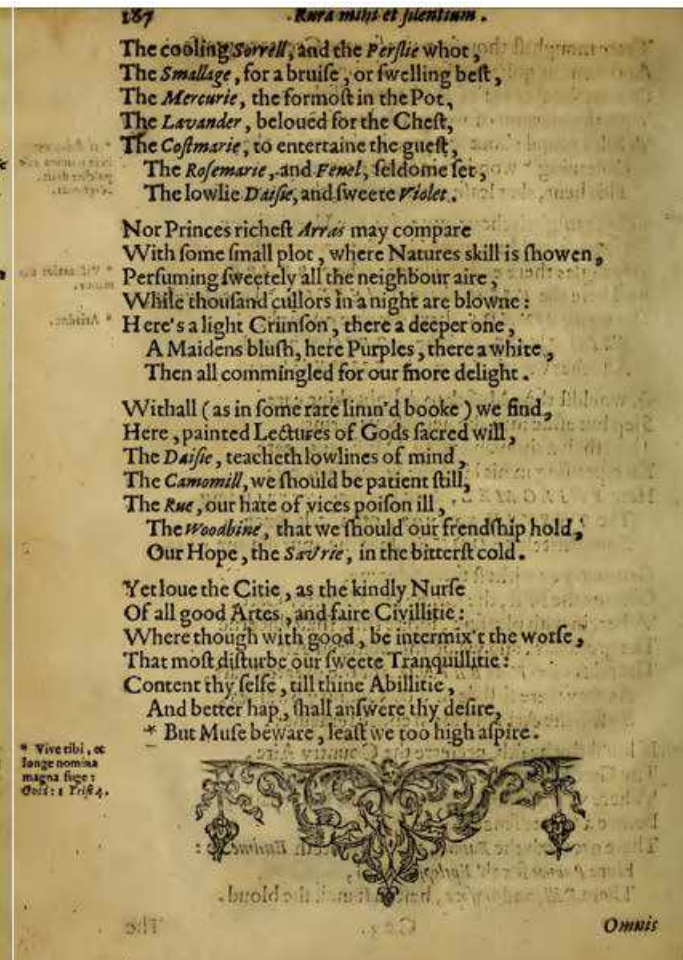 187 Rura mihi et silentium.
The cooling Sorrell, and the Perslie whot,
The Smallage, for a bruise, or swelling best,
The Mercurie, the formost in the Pot,
The Lavander, beloued for the Chest,
The Costmarie, to entertaine the guest,
The Rosemarie, and Fenel, seldome set,
The lowlie Daisie, and sweete Violet.
Nor Princes richest Arras may compare
With some small plot, where Natures skill is showen,
Perfuming sweetely all the neighbour aire,
While thousand cullors in a night are blowne:
Here's a light Crimson, there a deeper one,
A Maidens blush, here Purples, there a white,
Then all commingled for our more delight.
Withall (as in some rare limn'd booke) we find,
Here, painted Lectures of Gods sacred will,
The Daisie, teacheth lowlines of mind,
The Camomill, we should be patient still,
The Rue, our hate of vices poison ill,
The Woodbine, that we should our frendship hold,
Our Hope, the Sav'rie, in the bitterst cold.
Yet loue the Citie, as the kindly Nurse
Of all good Artes, and faire Civillitie:
Where though with good, be intermix't the worse,
That most disturbe our sweete Tranquillitie:
Content thy selfe, till thine Abillitie,
And better hap, shall answere thy desire,
* But Muse beware, least we too high aspire.
* Vive tibi, et
longe nomina
magna fuge:
Ovid: 1 Trist 4.
Omnis